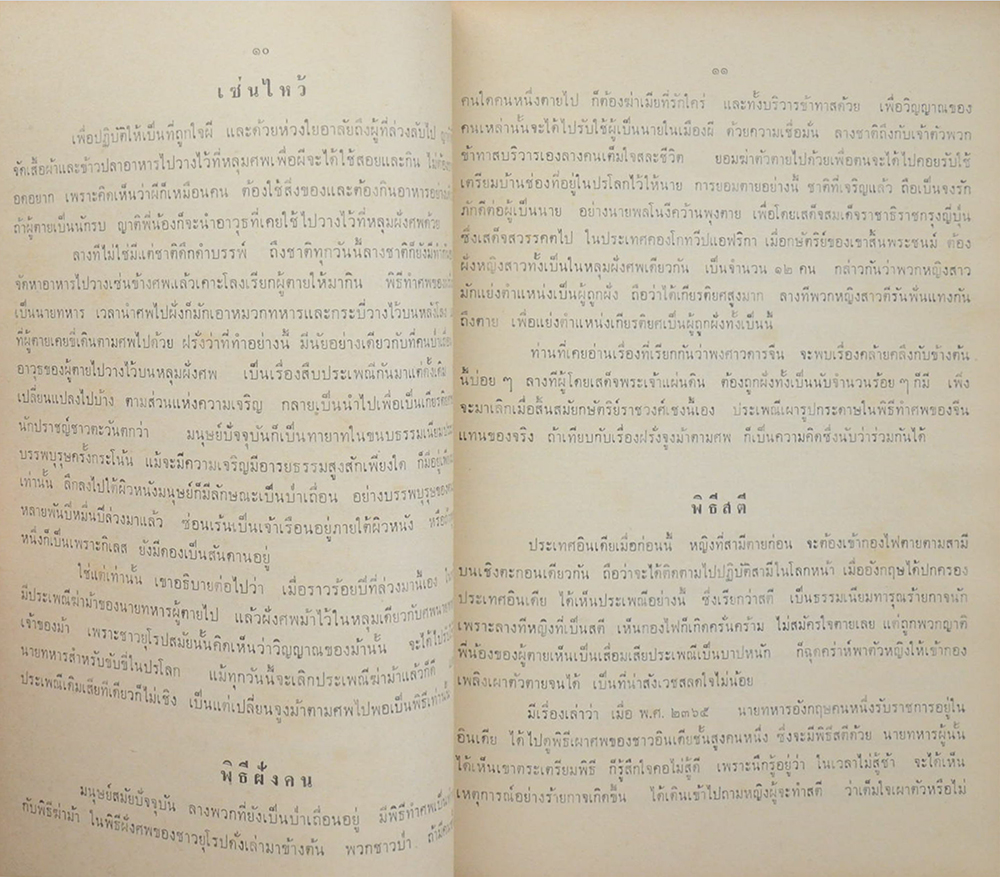 ๑๐
เซ่นไหว้
เพื่อปฏิบัติให้เป็นที่ถูกใจผี และด้วยห่วงใยอาลัยถึงผู้ที่ล่วงลับไป
จัดเสื้อผ้าและข้าวปลาอาหารไปวางไว้ที่หลุมศพเพื่อผีจะได้ใช้สอยและกิน
อดอยาก เพราะคิดเห็นว่าผีก็เหมือนคน ต้องใช้สิ่งของและต้องกินอาหาร
ถ้าผู้ตายเป็นนักรบ ญาติพี่น้องก็จะนำอาวุธที่เคยใช้ไปวางไว้ที่หลุมฝั่งศพด้วย
ลางทีไม่ใช่มีแต่ชาติดึกดำบรรพ์ ถึงชาติทุกวันนี้ลางชาติก็ยังมี
จัดหาอาหารไปวางเซ่นข้างศพแล้วเคาะโลงเรียกผู้ตายให้มากิน พิธีทำศพของ
เป็นนายทหาร เวลานำศพไปฝั่งก็มักเอาหมวกทหารและกระบี่วางไว้บนหลังโลง
ที่ผู้ตายเคยขี่เดินตามศพไปด้วย ฝรั่งว่าที่ทำอย่างนี้ มีนัยอย่างเดียวกับที่คนป่า
อาวุธของผู้ตายไปวางไว้บนหลุมฝั่งศพ เป็นเรื่องสืบประเพณีกันมาแต่ดั้งเดิม
เปลี่ยนแปลงไปบ้าง ตามส่วนแห่งความเจริญ กลายเป็นนำไปเพื่อเป็นเกียรติยศ
นักปราชญ์ชาวตะวันตกว่า มนุษย์ปัจจุบันก็เป็นทายาทในขนบธรรมเนียม
บรรพบุรุษครั้งกระโน้น แม้จะมีความเจริญมีอารยธรรมสูงสักเพียงใด ก็มีอยู่
เท่านั้น ลึกลงไปใต้ผิวหนังมนุษย์ก็มีลักษณะเป็นป่าเถื่อน อย่างบรรพบุรุษของ
หลายพันปีหมื่นปีล่วงมาแล้ว ซ่อนเร้นเป็นเจ้าเรือนอยู่ภายใต้ผิวหนัง
หนึ่งก็เป็นเพราะกิเลส ยังมีดองเป็นสันดานอยู่
ใช่แต่เท่านั้น เขาอธิบายต่อไปว่า เมื่อราวร้อยปีที่ล่วงมานี้เอง
มีประเพณีฆ่าม้าของนายทหารผู้ตายไป แล้วฝั่งศพม้าไว้ในหลุมเดียวกับศพ
เจ้าของม้า เพราะชาวยุโรปสมัยนั้นคิดเห็นว่าวิญญาณของม้านั้น จะได้ไป
นายทหารสำหรับขับขี่ในปรโลก แม้ทุกวันนี้จะเลิกประเพณีฆ่าม้าแล้วก็ดี
ประเพณีเดิมเสียทีเดียวก็ไม่เชิง เป็นแต่เปลี่ยนจูงม้าตามศพไปพอเป็นพิธีเท่านั้น
พิธีฝั่งคน
มนุษย์สมัยปัจจุบัน ลางพวกที่ยังเป็นป่าเถื่อนอยู่ มีพิธีทำศพเป็น
กับพิธีฆ่าม้า ในพิธีฝั่งศพของชาวยุโรปดั่งเล่ามาข้างต้น พวกชาวป่า
๑๑
คนใดคนหนึ่งตายไป ก็ต้องฆ่าเมียที่รักใคร่ และทั้งบริวารข้าทาสด้วย เพื่อวิญญาณของ
คนเหล่านั้นจะได้ไปรับใช้ผู้เป็นนายในเมืองผี ด้วยความเชื่อมั่น ลางชาติถึงกับเจ้าตัวพวก
ข้าทาสบริวารเองลางคนเต็มใจสละชีวิต ยอมฆ่าตัวตายไปด้วยเพื่อตนจะได้ไปคอยรับใช้
เตรียมบ้านช่องที่อยู่ในปรโลกไว้ให้นาย การยอมตายอย่างนี้ ชาติที่เจริญแล้ว ถือเป็นจงรัก
ภักดีต่อผู้เป็นนาย อย่างนายพลโนงีคว้านพุงตาย เพื่อโดยเสด็จสมเด็จราชาธิราชกรุงญี่ปุ่น
ซึ่งเสด็จสวรรคตไป ในประเทศคองโกทวีปแอฟริกา เมื่อกษัตริย์ของเขาสิ้นพระชนม์ ต้อง
ฝั่งหญิงสาวทั้งเป็นในหลุมฝั่งศพเดียวกัน เป็นจำนวน ๑๒ คน กล่าวกันว่าพวกหญิงสาว
มักแย่งตำแหน่งเป็นผู้ถูกฝั่ง ถือว่าได้เกียรติยศสูงมาก ลางทีพวกหญิงสาวตีรันฟันแทงกัน
ถึงตาย เพื่อแย่งตำแหน่งเกียรติยศเป็นผู้ถูกฝั่งทั้งเป็นนี้
ท่านที่เคยอ่านเรื่องที่เรียกกันว่าพงศาวดารจีน จะพบเรื่องคล้ายคลึงกับข้างต้น
นี้บ่อย ๆ ลางทีผู้โดยเสด็จพระเจ้าแผ่นดิน ต้องถูกฝั่งทั้งเป็นนับจำนวนร้อย ๆ ก็มี เพิ่ง
จะมาเลิกเมื่อสิ้นสมัยกษัตริย์ราชวงศ์เชงนี้เอง ประเพณีเผารูปกระดาษในพิธีทำศพของจีน
แทนของจริง ถ้าเทียบกับเรื่องฝรั่งจูงม้าตามศพ ก็เป็นความคิดซึ่งนับว่าร่วมกันได้
พิธีสตี
ประเทศอินเดียเมื่อก่อนนี้ หญิงที่สามีตายก่อน จะต้องเข้ากองไฟตายตามสามี
บนเชิงตะกอนเดียวกัน ถือว่าจะได้ติดตามไปปฏิบัติสามีในโลกหน้า เมื่ออังกฤษได้ปกครอง
ประเทศอินเดีย ได้เห็นประเพณีอย่างนี้ ซึ่งเรียกว่าสตี เป็นธรรมเนียมทารุณร้ายกาจนัก
เพราะลางทีหญิงที่เป็นสตี เห็นกองไฟก็เกิดครั่นคร้าม ไม่สมัครใจตายเลย แต่ถูกพวกญาติ
พี่น้องของผู้ตายเห็นเป็นเสื่อมเสียประเพณีเป็นบาปหนัก ก็ฉุดคร่าห์พาตัวหญิงให้เข้ากอง
เพลิงเผาตัวตายจนได้ เป็นที่น่าสังเวชสลดใจไม่น้อย
มีเรื่องเล่าว่า เมื่อ พ.ศ. ๒๓๖๕ นายทหารอังกฤษคนหนึ่งรับราชการอยู่ใน
อินเดีย ได้ไปดูพิธีเผาศพของชาวอินเดียชั้นสูงคนหนึ่ง ซึ่งจะมีพิธีสตีด้วย นายทหารผู้นั้น
ได้เห็นเขาตระเตรียมพิธี ก็รู้สึกใจคอไม่สู้ดี เพราะนึกรู้อยู่ว่า ในเวลาไม่สู้ช้า จะได้เห็น
เหตุการณ์อย่างร้ายกาจเกิดขึ้น ได้เดินเข้าไปถามหญิงผู้จะทำสตี ว่าเต็มใจเผาตัวหรือไม่